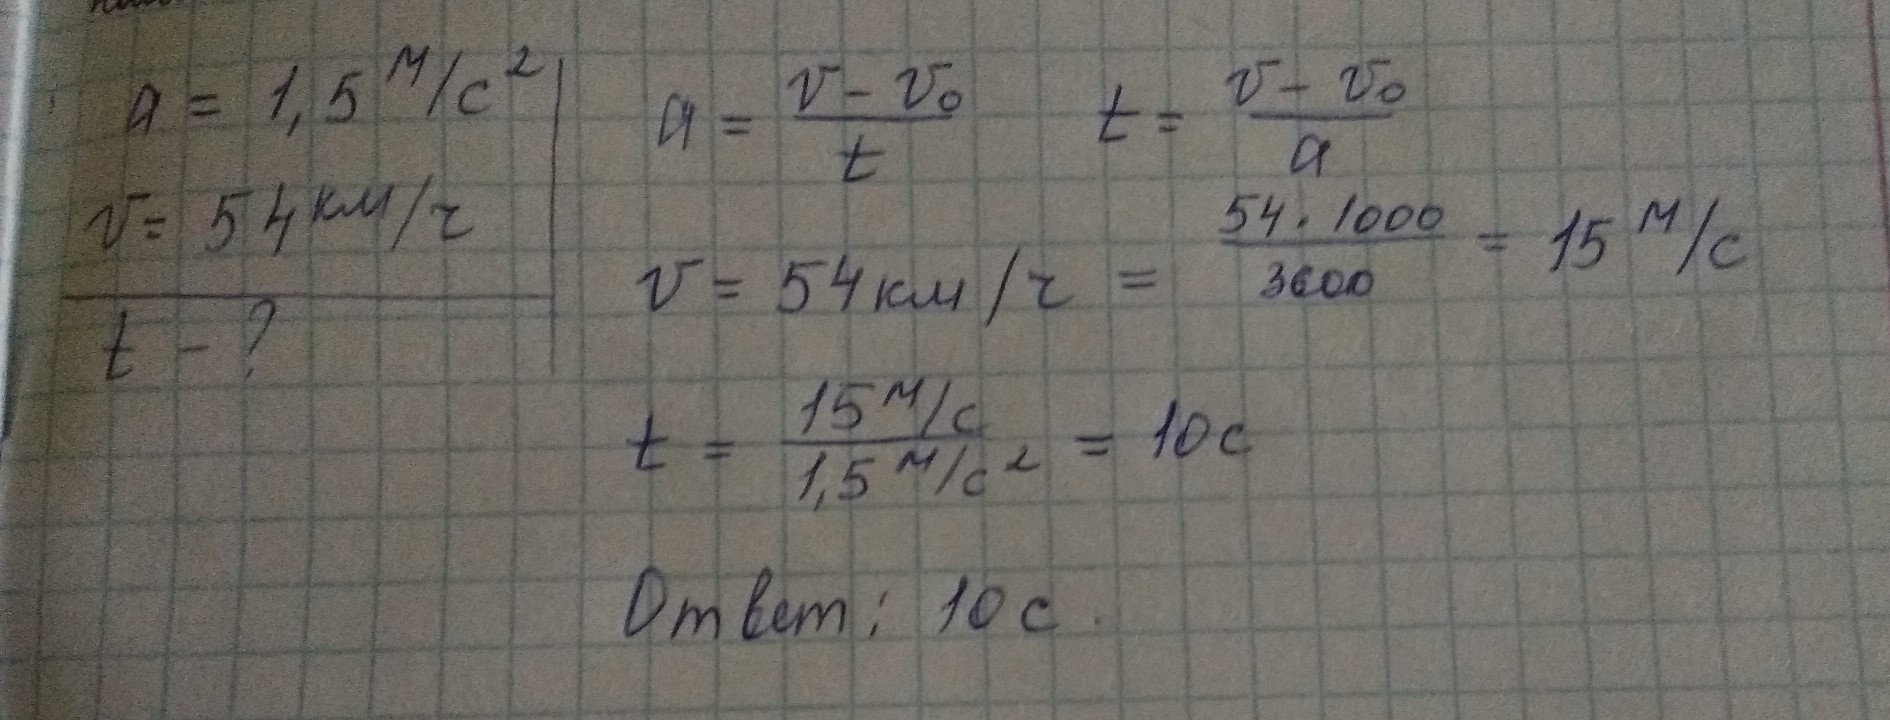 a = 1,5 м/с²
v = 54 км/ч
t - ?
a = (v - v₀)/t t = (v - v₀)/a
v = 54 км/ч = (54 · 1000)/3600 = 15 м/с
t = (15 м/с)/(1,5 м/с²) = 10 с
Ответ: 10 с.